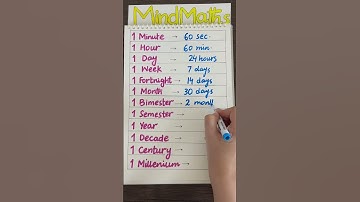 MindMaths
1 Minute → 60 sec
1 Hour → 60 min
1 Day → 24 hours
1 Week → 7 days
1 Fortnight → 14 days
1 Month → 30 days
1 Bimester → 2 mont
1 Semester →
1 Year →
1 Decade →
1 Century →
1 Millenium →